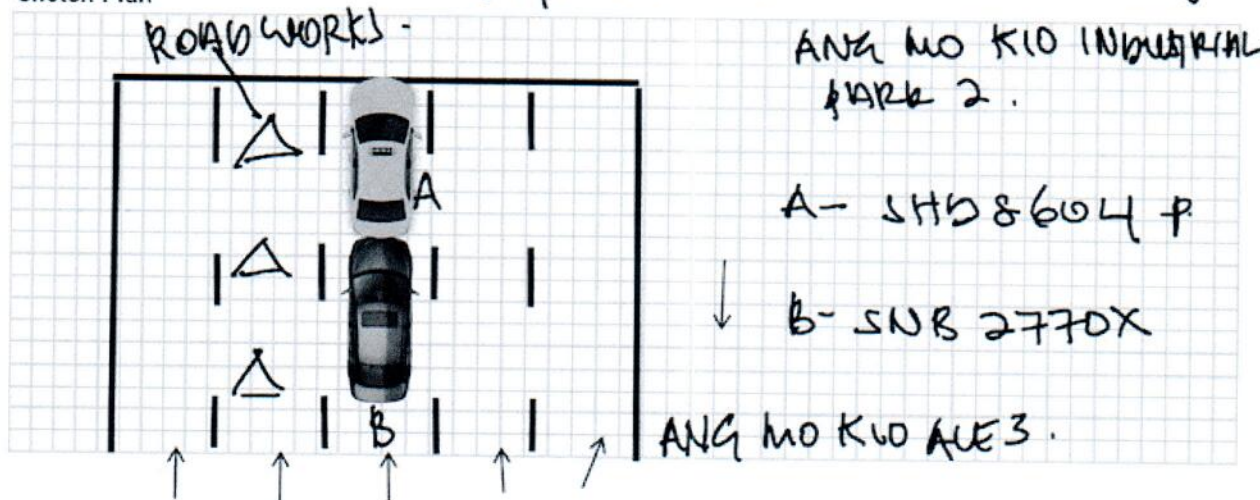 ROAD WORKS -
ANG MO KIO INDUSTRIAL
PARK 2.
A
A- SHD8604P
B- SNB 2770X
B
ANG MO KIO AVE 3.